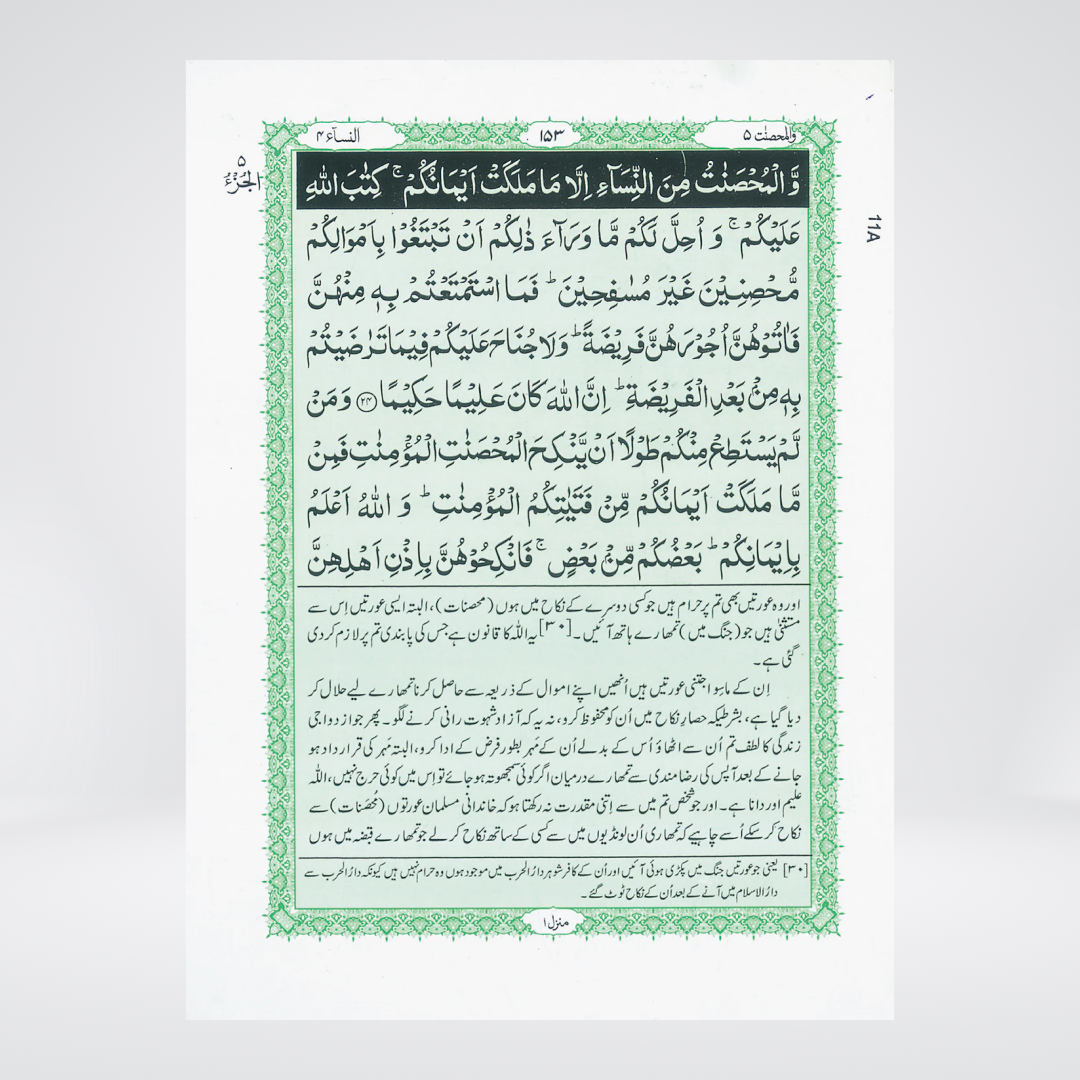 والمحصنٰت ۵
۱۵۳
النسآء ۴
۵
الجُزْءُ
11A
وَّ الْمُحْصَنٰتُ مِنَ النِّسَآءِ اِلَّا مَا مَلَكَتْ اَيْمَانُكُمْ ۚ كِتٰبَ اللّٰهِ
عَلَيْكُمْ ۚ وَ اُحِلَّ لَكُمْ مَّا وَرَآءَ ذٰلِكُمْ اَنْ تَبْتَغُوْا بِاَمْوَالِكُمْ
مُّحْصِنِيْنَ غَيْرَ مُسٰفِحِيْنَ ؕ فَمَا اسْتَمْتَعْتُمْ بِهٖ مِنْهُنَّ
فَاٰتُوْهُنَّ اُجُوْرَهُنَّ فَرِيْضَةً ؕ وَلَا جُنَاحَ عَلَيْكُمْ فِيْمَا تَرٰضَيْتُمْ
بِهٖ مِنْۢ بَعْدِ الْفَرِيْضَةِ ؕ اِنَّ اللّٰهَ كَانَ عَلِيْمًا حَكِيْمًا ﴿۲۴﴾ وَ مَنْ
لَّمْ يَسْتَطِعْ مِنْكُمْ طَوْلًا اَنْ يَّنْكِحَ الْمُحْصَنٰتِ الْمُؤْمِنٰتِ فَمِنْ
مَّا مَلَكَتْ اَيْمَانُكُمْ مِّنْ فَتَيٰتِكُمُ الْمُؤْمِنٰتِ ؕ وَ اللّٰهُ اَعْلَمُ
بِاِيْمَانِكُمْ ؕ بَعْضُكُمْ مِّنْۢ بَعْضٍ ۚ فَانْكِحُوْهُنَّ بِاِذْنِ اَهْلِهِنَّ
اور وہ عورتیں بھی تم پر حرام ہیں جو کسی دوسرے کے نکاح میں ہوں (محصنات)، البتہ ایسی عورتیں اِس سے
مستثنیٰ ہیں جو (جنگ میں) تمھارے ہاتھ آئیں۔[۳۰] یہ اللہ کا قانون ہے جس کی پابندی تم پر لازم کر دی
گئی ہے۔
اِن کے ماسِوا جتنی عورتیں ہیں اُنھیں اپنے اموال کے ذریعہ سے حاصل کرنا تمھارے لیے حلال کر
دیا گیا ہے، بشرطیکہ حصارِ نکاح میں اُن کو محفوظ کرو، نہ یہ کہ آزاد شہوت رانی کرنے لگو۔ پھر جو ازدواجی
زندگی کا لطف تم اُن سے اٹھاؤ اُس کے بدلے اُن کے مَہر بطور فرض کے ادا کرو، البتہ مَہر کی قرارداد ہو
جانے کے بعد آپس کی رضامندی سے تمھارے درمیان اگر کوئی سمجھوتہ ہو جائے تو اِس میں کوئی حرج نہیں، اللہ
علیم اور دانا ہے۔ اور جو شخص تم میں سے اِتنی مقدرت نہ رکھتا ہو کہ خاندانی مسلمان عورتوں (مُحصَنات) سے
نکاح کر سکے اُسے چاہیے کہ تمھاری اُن لونڈیوں میں سے کسی کے ساتھ نکاح کر لے جو تمھارے قبضہ میں ہوں
[۳۰] یعنی جو عورتیں جنگ میں پکڑی ہوئی آئیں اور اُن کے کافر شوہر دارُ الحرب میں موجود ہوں وہ حرام نہیں ہیں کیونکہ دارُ الحرب سے
دارُ الاسلام میں آنے کے بعد اُن کے نکاح ٹوٹ گئے۔
منزل ۱